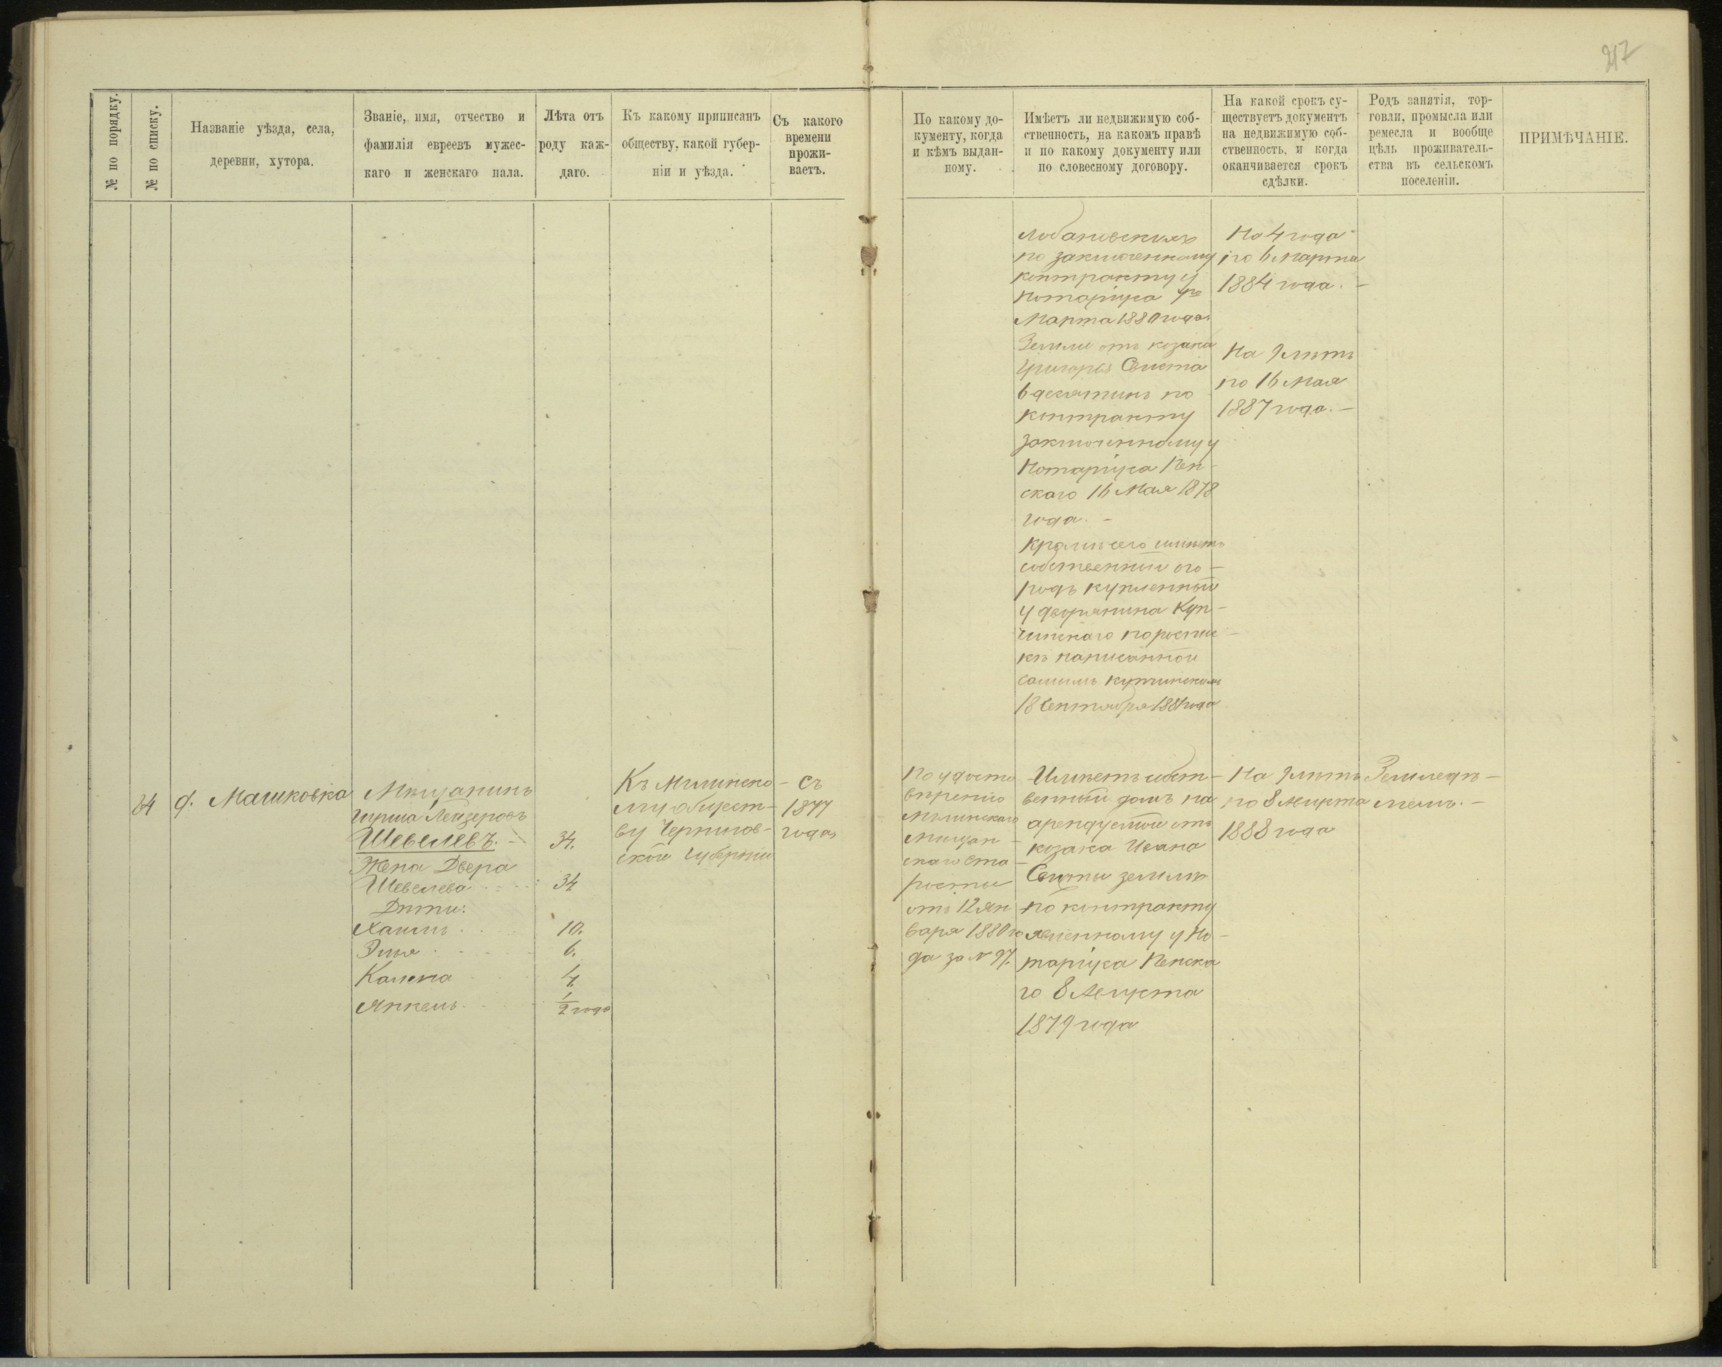 217
№ по порядку.
№ по списку.
Названіе уѣзда, села,
деревни, хутора.
Званіе, имя, отчество и
фамилія евреевъ мужес-
каго и женскаго пола.
Лѣта отъ
роду каж-
даго.
Къ какому приписанъ
обществу, какой губер-
ніи и уѣзда.
Съ какого
времени
прожи-
ваетъ.
По какому до-
кументу, когда
и кѣмъ выдан-
ному.
Имѣетъ ли недвижимую соб-
ственность, на какомъ правѣ
и по какому документу или
по словесному договору.
На какой срокъ су-
ществуетъ документъ
на недвижимую соб-
ственность, и когда
оканчивается срокъ
сдѣлки.
Родъ занятія, тор-
говли, промысла или
ремесла и вообще
цѣль проживатель-
ства въ сельскомъ
поселеніи.
ПРИМѢЧАНІЕ.
по заключенному
контракту у
Нотаріуса
Марта 1880 года
Земли отъ козака
Григорія Свиста
6 десятинъ по
контракту
заключенному у
Нотаріуса Пен-
скаго 16 Мая 1878
года. –
Кромѣ сего имѣетъ
собственный ого-
родъ купленный
у дворянина Куп-
чинскаго по роспис-
кѣ написанной
самимъ Купчинскимъ
18 Сентября 1881 года
На 4 года
по 6 Марта
1884 года. –
На 9 лѣтъ
по 16 Мая
1887 года. –
84
д. Машковка
Мѣщанинъ
Гирша Лейзеровъ
Шевелевъ. –
Жена Двера
Шевелева
Дѣти:
Хаимъ
Эшя
Калмпа
Янкель
34.
34
10.
6.
4
1/2 года
Къ Мглинско-
му обществ-
ву Чернигов-
ской губерніи
съ
1877
года
По удосто
вѣренію
Мглинскаго
мѣщан-
скаго ста-
росты
отъ 12 Ян
варя 1880 го
да за № 97.
Имѣетъ собст-
венный домъ на
арендуемой отъ
козака Ивана
Свисты землѣ
по контракту
явленному у Но-
таріуса Пенска
го 8 Августа
1879 года
На 9 лѣтъ
по 8 Августа
1888 года
Земледѣ-
лемъ. –